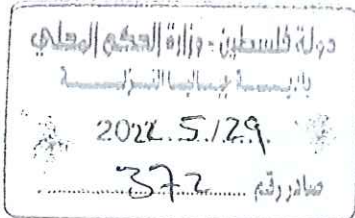 دولة فلسطين - وزارة الحكم المحلي
2022.5/29
صادر رقم 372